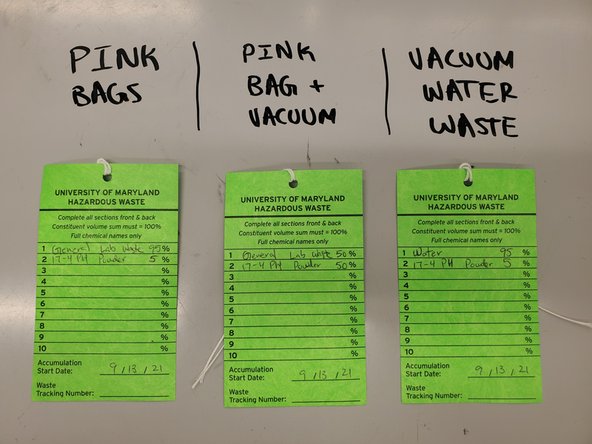 PINK
BAGS
PINK
BAG +
VACUUM
VACUUM
WATER
WASTE
UNIVERSITY OF MARYLAND
HAZARDOUS WASTE
Complete all sections front & back
Constituent volume sum must = 100%
Full chemical names only
1 General Lab Waste 95%
2 17-4 PH Powder 5 %
3 %
4 %
5 %
6 %
7 %
8 %
9 %
10 %
Accumulation
Start Date: 9 / 13 / 21
Waste
Tracking Number:
UNIVERSITY OF MARYLAND
HAZARDOUS WASTE
Complete all sections front & back
Constituent volume sum must = 100%
Full chemical names only
1 General Lab Waste 50%
2 17-4 PH Powder 50%
3 %
4 %
5 %
6 %
7 %
8 %
9 %
10 %
Accumulation
Start Date: 9 / 13 / 21
Waste
Tracking Number:
UNIVERSITY OF MARYLAND
HAZARDOUS WASTE
Complete all sections front & back
Constituent volume sum must = 100%
Full chemical names only
1 Water 95 %
2 17-4 PH Powder 5 %
3 %
4 %
5 %
6 %
7 %
8 %
9 %
10 %
Accumulation
Start Date: 9 / 13 / 21
Waste
Tracking Number: